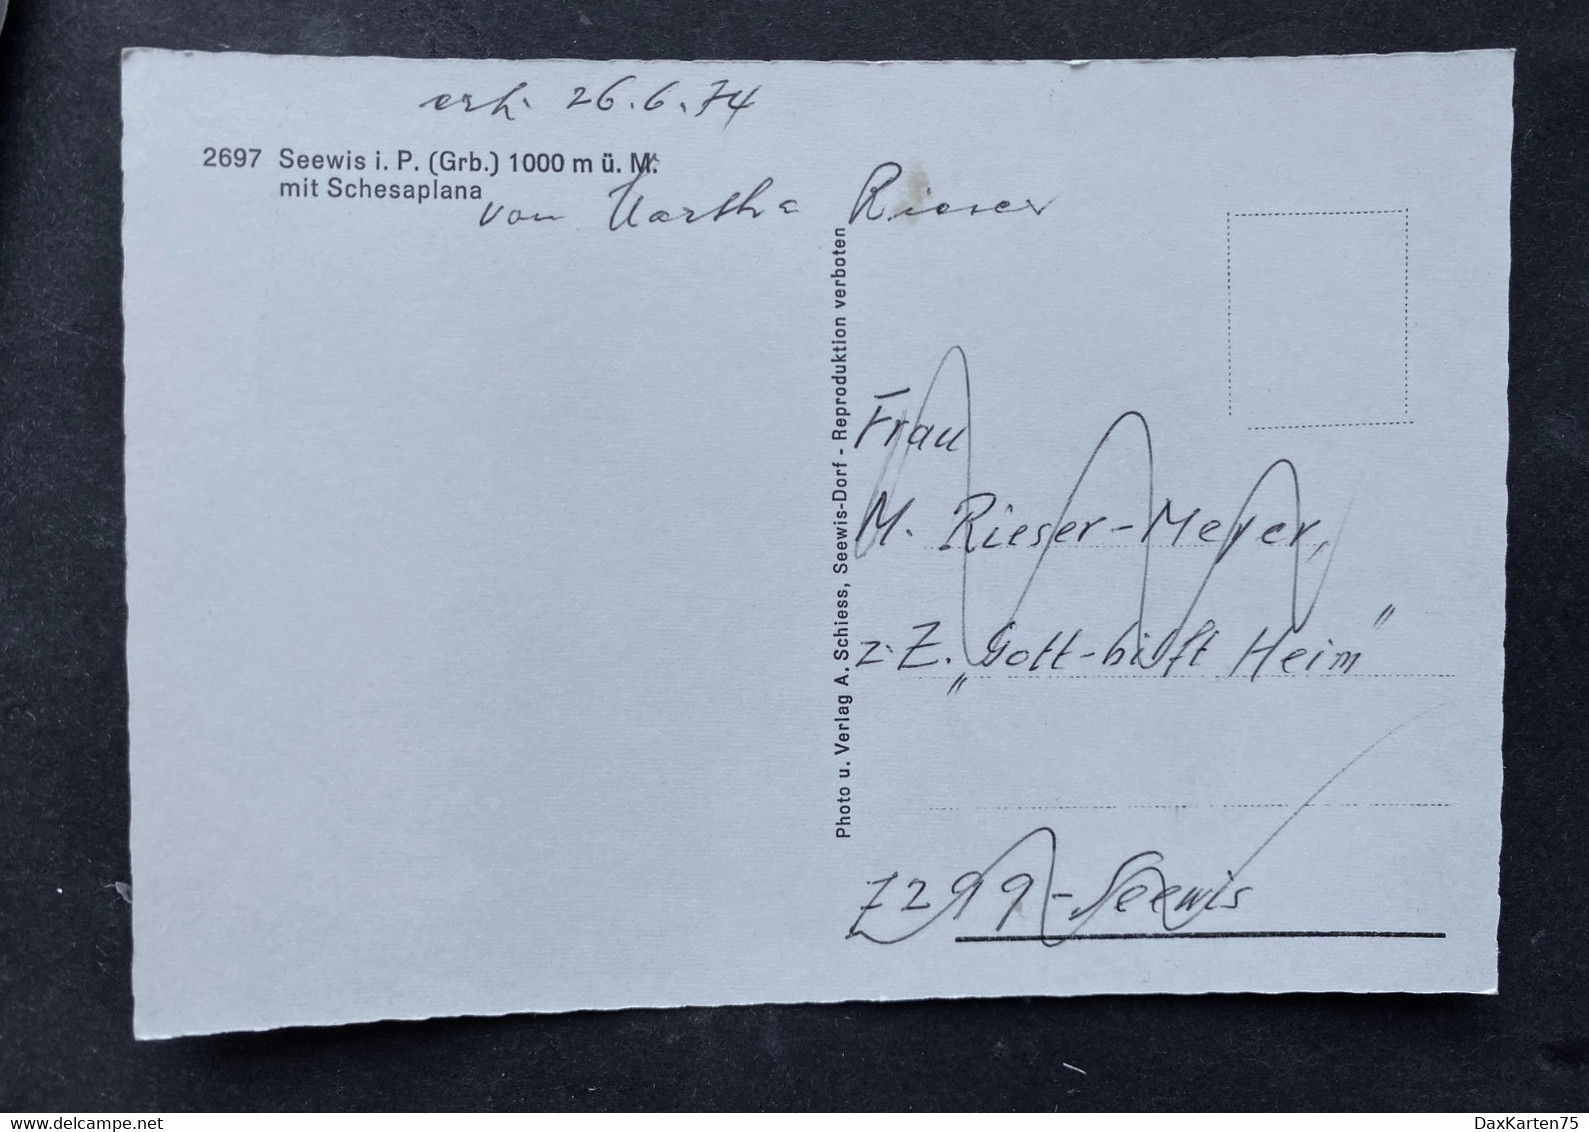 erh. 26.6.74
2697 Seewis i. P. (Grb.) 1000 m ü. M.
mit Schesaplana
von Martha Rieser
Photo u. Verlag A. Schiess, Seewis-Dorf - Reproduktion verboten
Frau
M. Rieser-Meyer,
z. Z. „Gott-hilft Heim"
7299-Seewis
www.delcampe.net
DaxKarten75